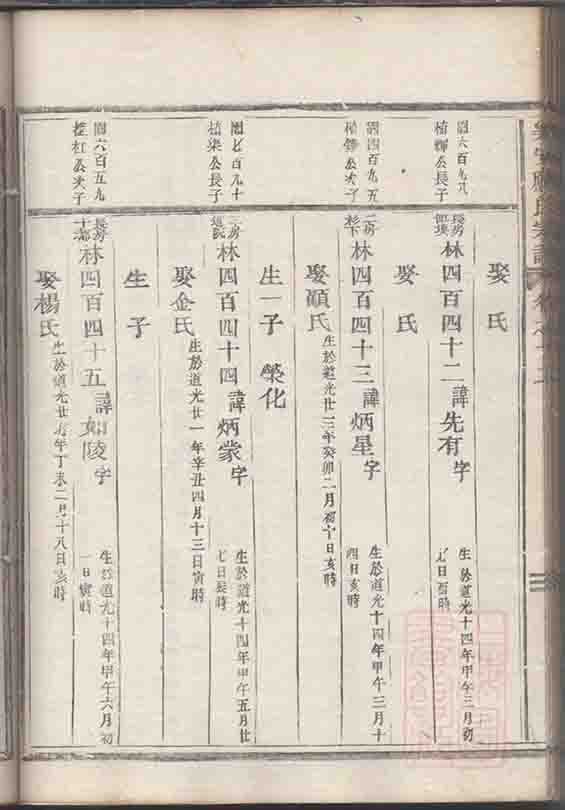 娶 氏
圖六百九八
植輝公長子
林四百四十二
諱先有字
生於道光十四年甲午三月初
日酉時
娶 氏
圖四百九五
公次子
二房
杉下
林四百四十三
諱炳星字
生於道光十四年甲午三月十
四日亥時
娶顧氏
生於道光廿三年癸卯二月初十日亥時
生一子 榮化
圖七百九十
公長子
二房
林四百四十四
諱炳蒙字
生於道光十四年甲午五月廿
七日辰時
娶金氏
生於道光廿一年辛丑四月十三日寅時
生 子
圖六百五九
公次子
長房
林四百四十五
諱如陵字
生於道光十四年甲午六月初
一日寅時
娶楊氏
生於道光廿 年丁未二月十八日亥時